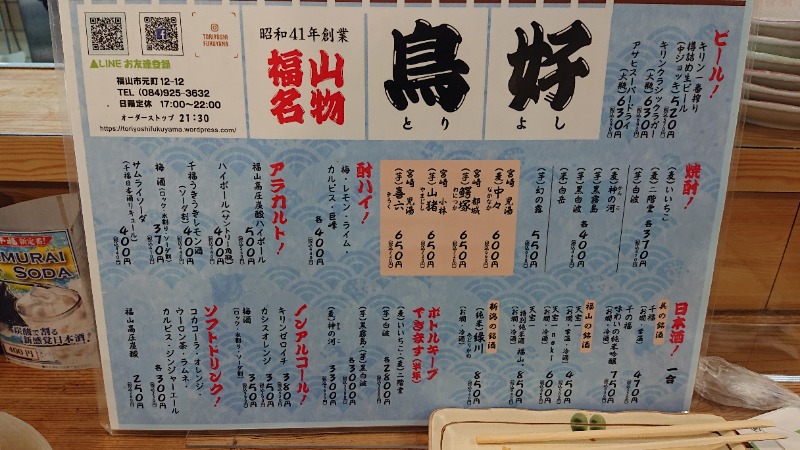 TORIYOSHI
FUKUYAMA
▲LINE お友達登録
福山市元町12-12
TEL (084)925-3632
日曜定休 17:00〜22:00
オーダーストップ 21:30
https://toriyoshifukuyama.wordpress.com/
昭和41年創業
福山名物
鳥好
とりよし
ビール!
キリン一番搾り
樽詰め生ビール
(中ジョッキ) 520円
キリンクラシックラガー
(大瓶) 630円
アサヒスーパードライ
(大瓶) 630円
焼酎!
(麦)いいちこ
(麦)二階堂 各370円
(芋)白波
(麦)神の河
(芋)黒霧島
(芋)黒白波 各400円
(米)白岳
(芋)幻の露 550円
宮崎 黒湯
(麦)中々 600円
なかなか
宮崎 都城
(芋)鰐塚 650円
わにつか
宮崎 小林
(芋)山猪 650円
やまじし
宮崎 黒湯
(芋)喜六 650円
きろく
酎ハイ!
梅・レモン・ライム・
カルピス・巨峰 各400円
アラカルト!
福山高圧炭酸ハイボール 500円
ハイボール(サントリー角瓶) 400円
千福うきうきレモン酒
(ソーダ割) 400円
梅酒(ロック・水割り・ソーダ割) 370円
サムライソーダ
(千福日本酒リキュール) 400円
日本酒! 一合
呉の銘酒
千福
(お燗・常温) 470円
千の福
味わいの純米吟醸
(お燗・冷酒) 750円
福山の銘酒
天宝一
(お燗・常温・冷酒) 450円
天宝一
(お燗・冷酒) 600円
天宝一
特別純米酒 福山。
(お燗・冷酒) 850円
新潟の銘酒
(純米)緑川
(お燗・冷酒) 850円
ボトルキープ
できます(半年)
(麦)いいちこ・(麦)二階堂
(芋)白波 各2800円
(芋)黒霧島・(芋)黒白波 各3000円
(麦)神の河 3300円
ノンアルコール!
キリンゼロイチ 380円
カシスオレンジ 350円
梅酒
(ロック・水割・ソーダ割) 350円
ソフトドリンク!
コカコーラ・オレンジ・
ウーロン茶・ラムネ・
カルピス・ジンジャーエール 各300円
福山高圧炭酸 250円
新定番!
SAMURAI
SODA
炭酸で割る
新感覚日本酒!
400円